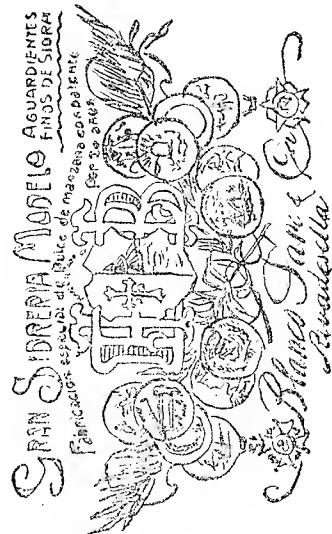 GRAN SIDRERIA MODELO
AGUARDIENTES
FINOS DE SIDRA
Fabricacion especial del Dulce de manzana con patente
por 20 años
Blanco
Rivadesella